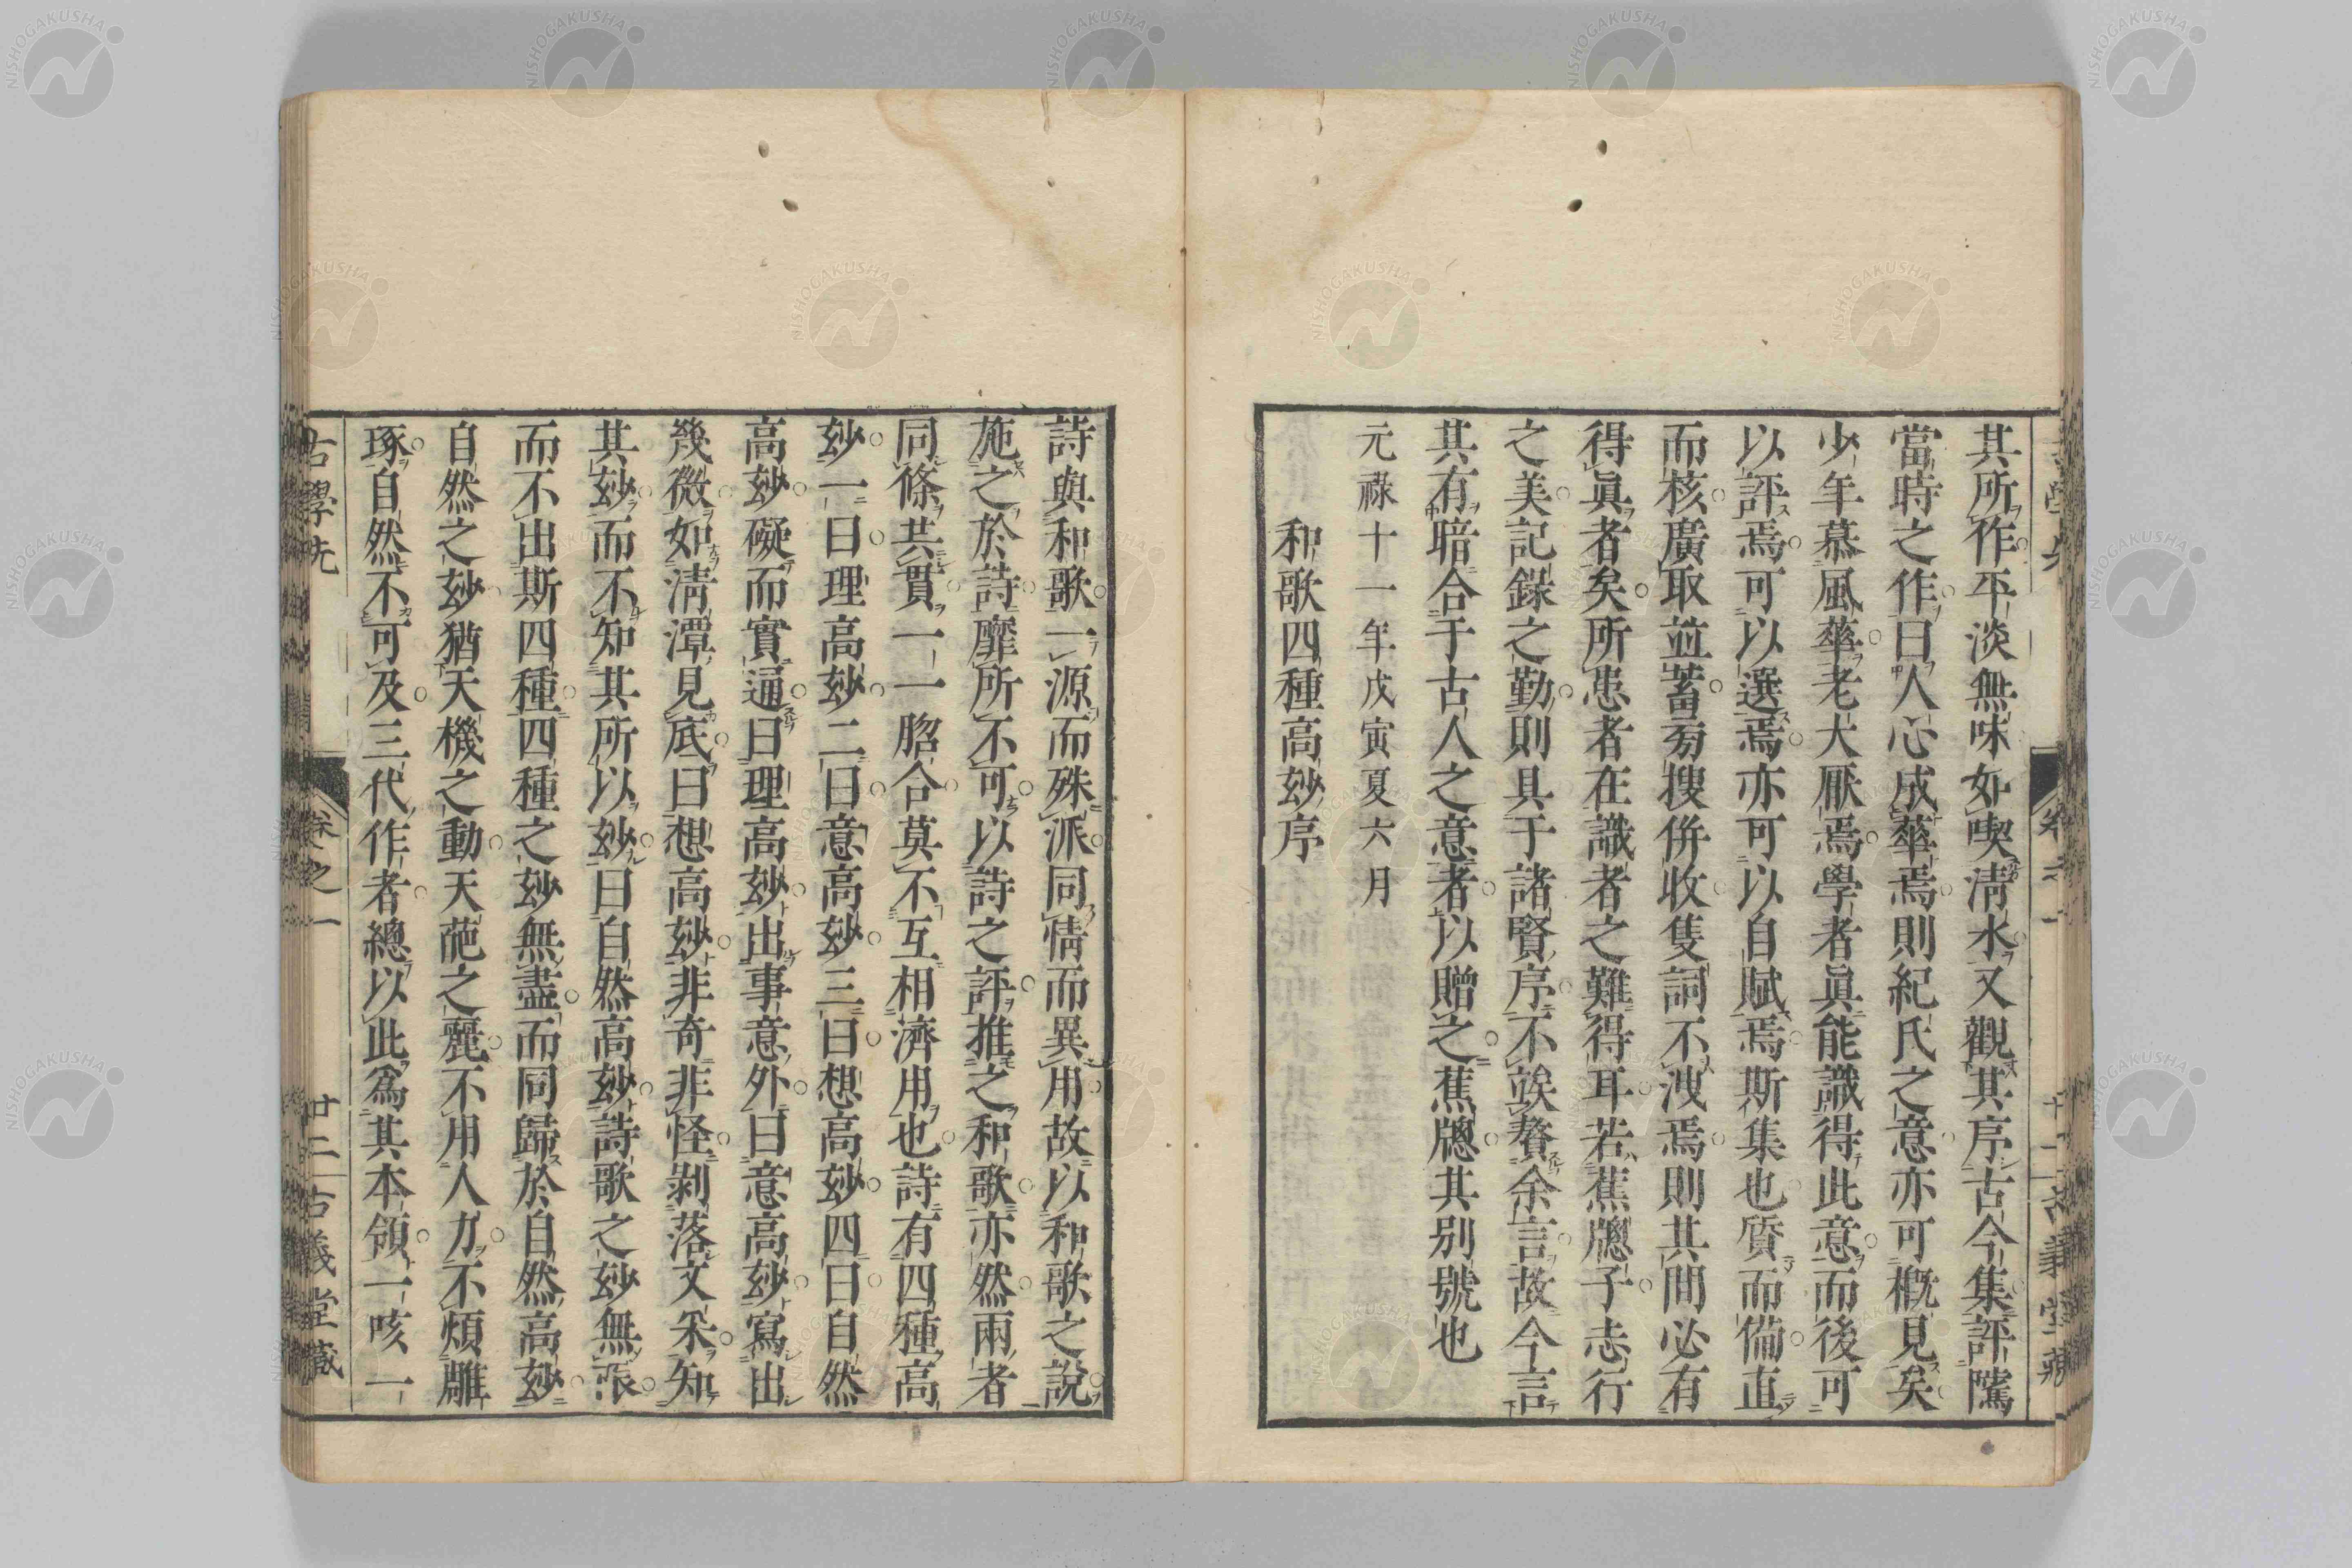 其所作平淡無味如喫清水又觀其序古今集評隲
當時之作曰人心成華焉則紀氏之意亦可概見矣
少年慕風華老大厭焉學者眞能識得此意而後可
以評焉可以選焉亦可以自賦焉斯集也質而俻直
而核廣取並蓄旁搜併收隻詞不洩焉則其間必有
得眞者矣所患者在識者之難得耳若蕉牕子志行
之美記錄之勤則具于諸賢序不竢贅余言故今言
其有暗合于古人之意者以贈之蕉牕其別號也
元祿十一年戊寅夏六月
和歌四種高玅序
詩與和歌一源而殊派同情而異用故以和歌之說
施之於詩靡所不可以詩之評推之和歌亦然兩者
同條共貫一一脗合莫不互相濟用也詩有四種高
玅一曰理高玅二曰意高玅三曰想高玅四曰自然
高玅礙而實通曰理高玅出事意外曰意高玅寫出
幾微如清潭見底曰想高玅非奇非怪剥落文采知
其玅而不知其所以玅曰自然高玅詩歌之玅無漲
而不出斯四種四種之玅無盡而同歸於自然高玅
自然之玅猶天機之動天葩之麗不用人力不煩雕
琢自然不可及三代作者總以此爲其本領一咳一
古學先
卷之一
廿二
古義堂藏